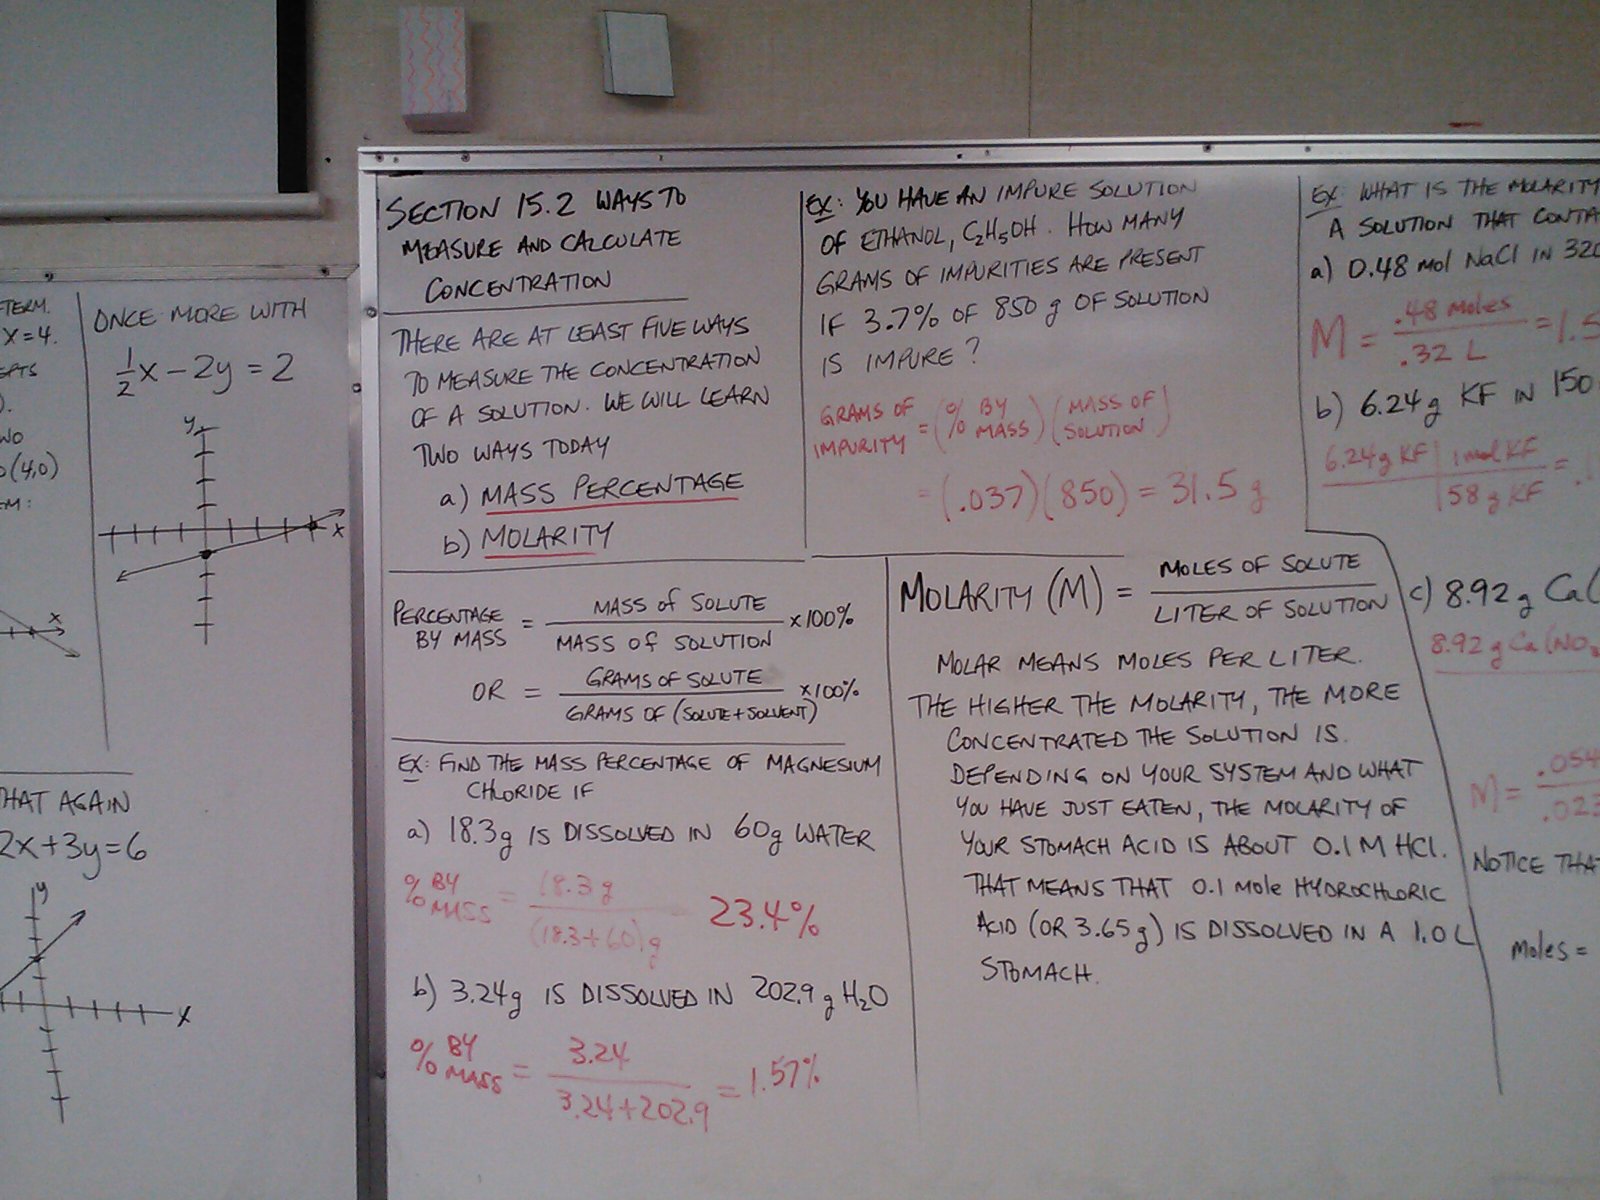 -TERM.
X=4.
EPTS
).
WO
(4,0)
EM:
x
ONCE MORE WITH
1/2 x - 2y = 2
y
x
THAT AGAIN
2x+3y=6
y
x
SECTION 15.2 WAYS TO
MEASURE AND CALCULATE
CONCENTRATION
THERE ARE AT LEAST FIVE WAYS
TO MEASURE THE CONCENTRATION
OF A SOLUTION. WE WILL LEARN
TWO WAYS TODAY
a) MASS PERCENTAGE
b) MOLARITY
PERCENTAGE BY MASS = MASS of SOLUTE / MASS of SOLUTION x100%
OR = GRAMS OF SOLUTE / GRAMS OF (SOLUTE+SOLVENT) x100%
EX: FIND THE MASS PERCENTAGE OF MAGNESIUM
CHLORIDE IF
a) 18.3g IS DISSOLVED IN 60g WATER
% BY MASS = 18.3 g / (18.3+60)g 23.4%
b) 3.24g IS DISSOLVED IN 202.9 g H₂O
% BY MASS = 3.24 / 3.24+202.9 = 1.57%
EX: YOU HAVE AN IMPURE SOLUTION
OF ETHANOL, C₂H₅OH. HOW MANY
GRAMS OF IMPURITIES ARE PRESENT
IF 3.7% OF 850 g OF SOLUTION
IS IMPURE?
GRAMS OF IMPURITY = (% BY MASS)(MASS OF SOLUTION)
= (.037)(850) = 31.5 g
MOLARITY (M) = MOLES OF SOLUTE / LITER OF SOLUTION
MOLAR MEANS MOLES PER LITER.
THE HIGHER THE MOLARITY, THE MORE
CONCENTRATED THE SOLUTION IS.
DEPENDING ON YOUR SYSTEM AND WHAT
YOU HAVE JUST EATEN, THE MOLARITY OF
YOUR STOMACH ACID IS ABOUT 0.1 M HCl.
THAT MEANS THAT 0.1 mole HYDROCHLORIC
ACID (OR 3.65g) IS DISSOLVED IN A 1.0 L
STOMACH.
EX: WHAT IS THE MOLARITY
A SOLUTION THAT CONTA
a) 0.48 mol NaCl IN 320
M = .48 moles / .32 L = 1.5
b) 6.24g KF IN 150
6.24g KF | 1 mol KF / 58 g KF = .1
c) 8.92 g Ca(
8.92 g Ca(NO₃
M = .054 / .023
NOTICE THAT
moles =